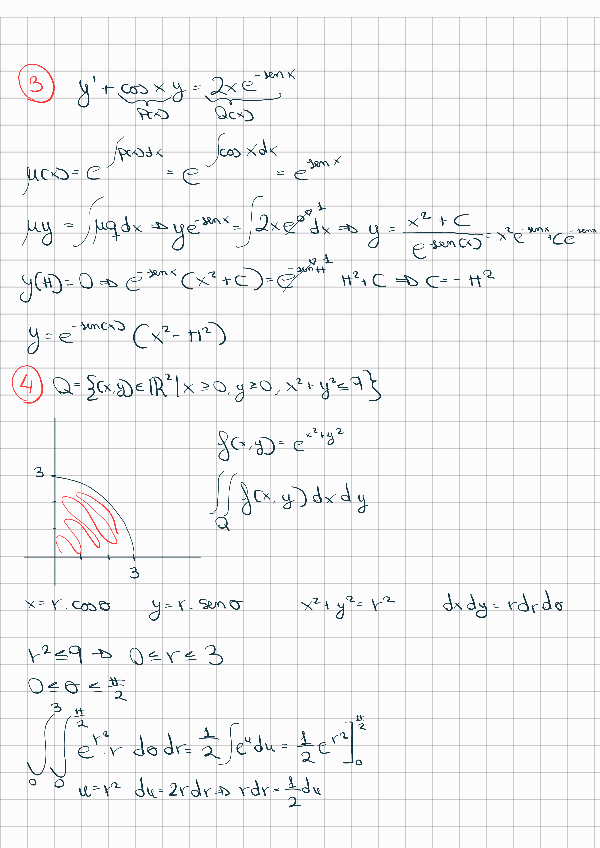 3 y' + cos x y = 2xe^-sen x
P(x) Q(x)
μ(x) = e^∫p(x)dx = e^∫cos x dx = e^sen x
μy = ∫μq dx ⇒ ye^-sen x = ∫2xe^0 1 dx ⇒ y = x² + C / e^sen(x) = x²e^-sen x + Ce^-sen x
y(π) = 0 ⇒ e^-sen x (x² + C) = e^-sen π 1 π² + C ⇒ C = - π²
y = e^-sen(x) (x² - π²)
4 Q = {(x,y) ∈ ℝ² | x ≥ 0, y ≥ 0, x² + y² ≤ 9}
f(x,y) = e^x²+y²
3
∬_Q f(x,y) dx dy
3
x = r. cosσ y = r. senσ x² + y² = r² dx dy = r dr dσ
r² ≤ 9 ⇒ 0 ≤ r ≤ 3
0 ≤ σ ≤ π/2
∫_0^3 ∫_0^π/2 e^r² . r dσ dr = 1/2 ∫e^u du = 1/2 e^r² ]_0^π/2
u = r² du = 2r dr ⇒ r dr = 1/2 du